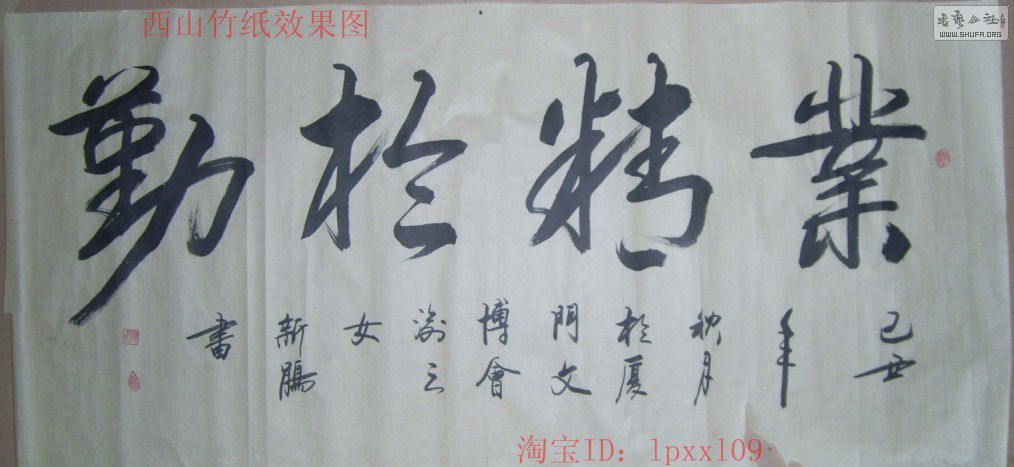 西山竹纸效果图
書藝公社
WWW.SHUFA.ORG
業精於勤
己丑
年
秋月
於厦
門文
博會
渝之
女
新鵬
書
淘宝ID：lpxxl09